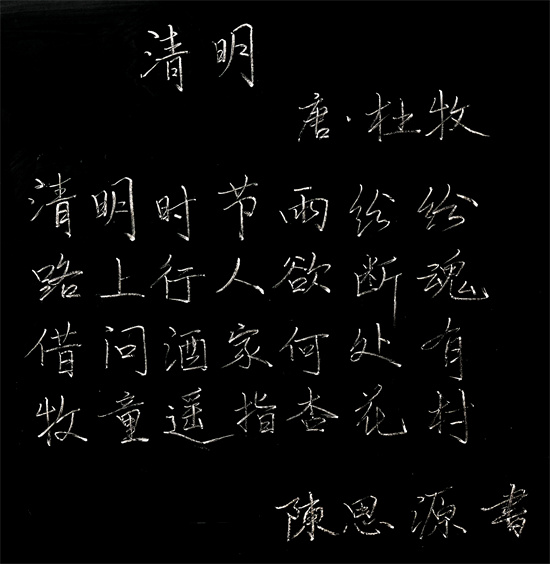 清明
唐·杜牧
清明时节雨纷纷
路上行人欲断魂
借问酒家何处有
牧童遥指杏花村
陳思源書